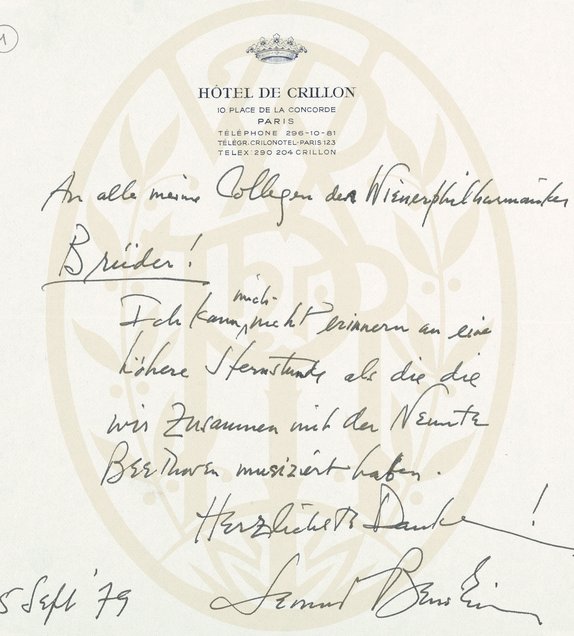 1
HÔTEL DE CRILLON
10 PLACE DE LA CONCORDE
PARIS
TÉLÉPHONE 296-10-81
TÉLÉGR. CRILONOTEL-PARIS 123
TELEX 290 204 CRILLON
An alle meine Collegen der Wienerphilharmoniker
Brüder!
Ich kann mich nicht erinnern an eine
höhere Sternstunde als die die
wir zusammen mit der Neunte
Beethoven musiziert haben.
Herzlichste Danke!
5 Sept '79
Leonard Bernstein